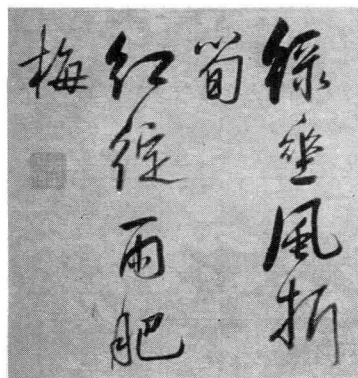 綠垂風折
筍
紅綻雨肥
梅